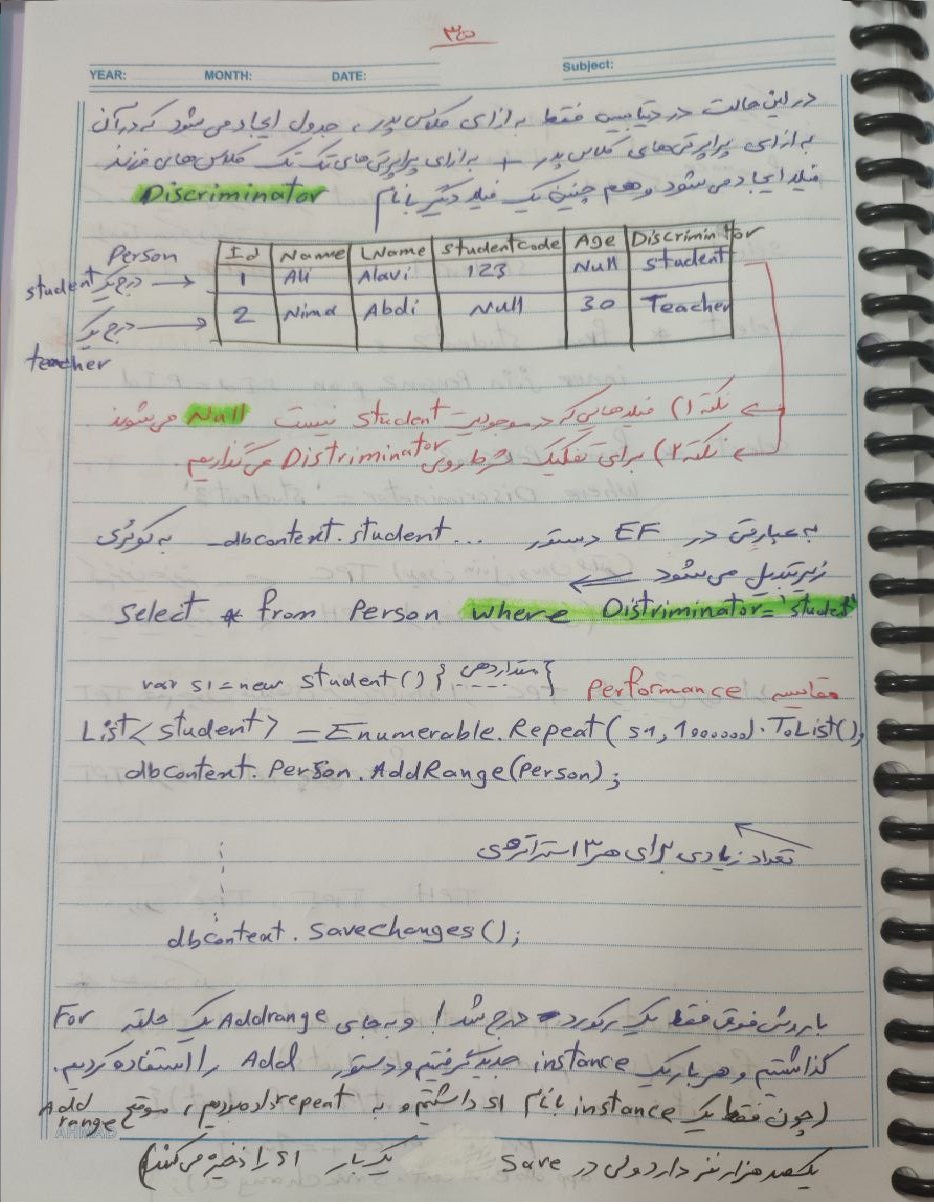 ۳۵
YEAR: MONTH: DATE: Subject:
در این حالت در دیتابیس فقط به ازای کلاس پدر، جدول ایجاد می شود که در آن
به ازای پراپرتی های کلاس پدر + به ازای پراپرتی های تک تک کلاس های فرزند
فیلد ایجاد می شود و هم چنین یک فیلد دیگر با نام Discriminator
Person
Id Name LName studentcode Age Discriminator
درج یک student → 1 Ali Alavi 123 Null student
درج یک teacher → 2 Nima Abdi Null 30 Teacher
نکته ۱) فیلدهایی که در موجودیت student نیست Null می شوند
نکته ۲) برای تفکیک شرط روی Distriminator می گذاریم.
به عبارتی در EF دستور ... _dbcontext.student به کوئری
زیر تبدیل می شود ⇐
Select * from Person where Distriminator='studet'
مقایسه Performance
var s1 = new student() { مقداردهی }
List<student> = Enumerable.Repeat(s1, 1000000).ToList();
dbcontext.Person.AddRange(Person);
تعداد زیادی برای هر ۳ استراتژی
dbcontext.SaveChanges();
با روش فوق فقط یک رکورد درج شد! و به جای Addrange یک حلقه For
گذاشتیم و هر بار یک instance جدید گرفتیم و دستور Add را استفاده کردیم.
(چون فقط یک instance با نام s1 داشتیم و به repeat داده بودیم، موقع Add range
یکصد هزار نیز دارد ولی در save یک بار s1 را ذخیره می کند)